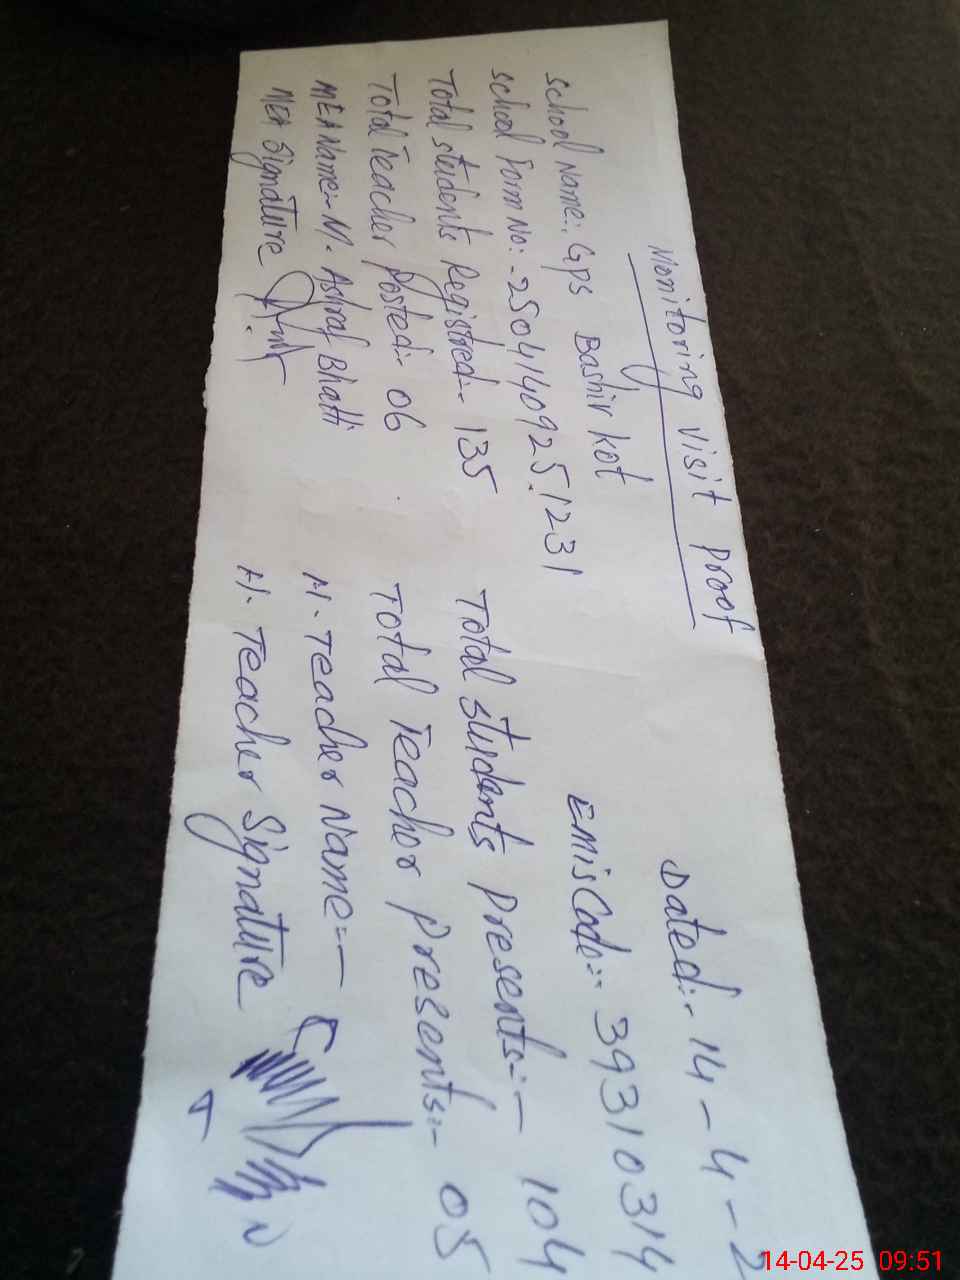 Monitoring visit proof
Dated:- 14-4-2
School Name:- Gps Bashir Kot
EmisCode:- 39310314
School Form No:- 25041409251231
Total students Registred:- 135
Total students presents:- 104
Total Teacher posted:- 06
Total Teacher presents:- 05
MEA Name:- M. Ashraf Bhatti
H. Teacher Name:-
MEA Signature
H. Teacher Signature
14-04-25 09:51